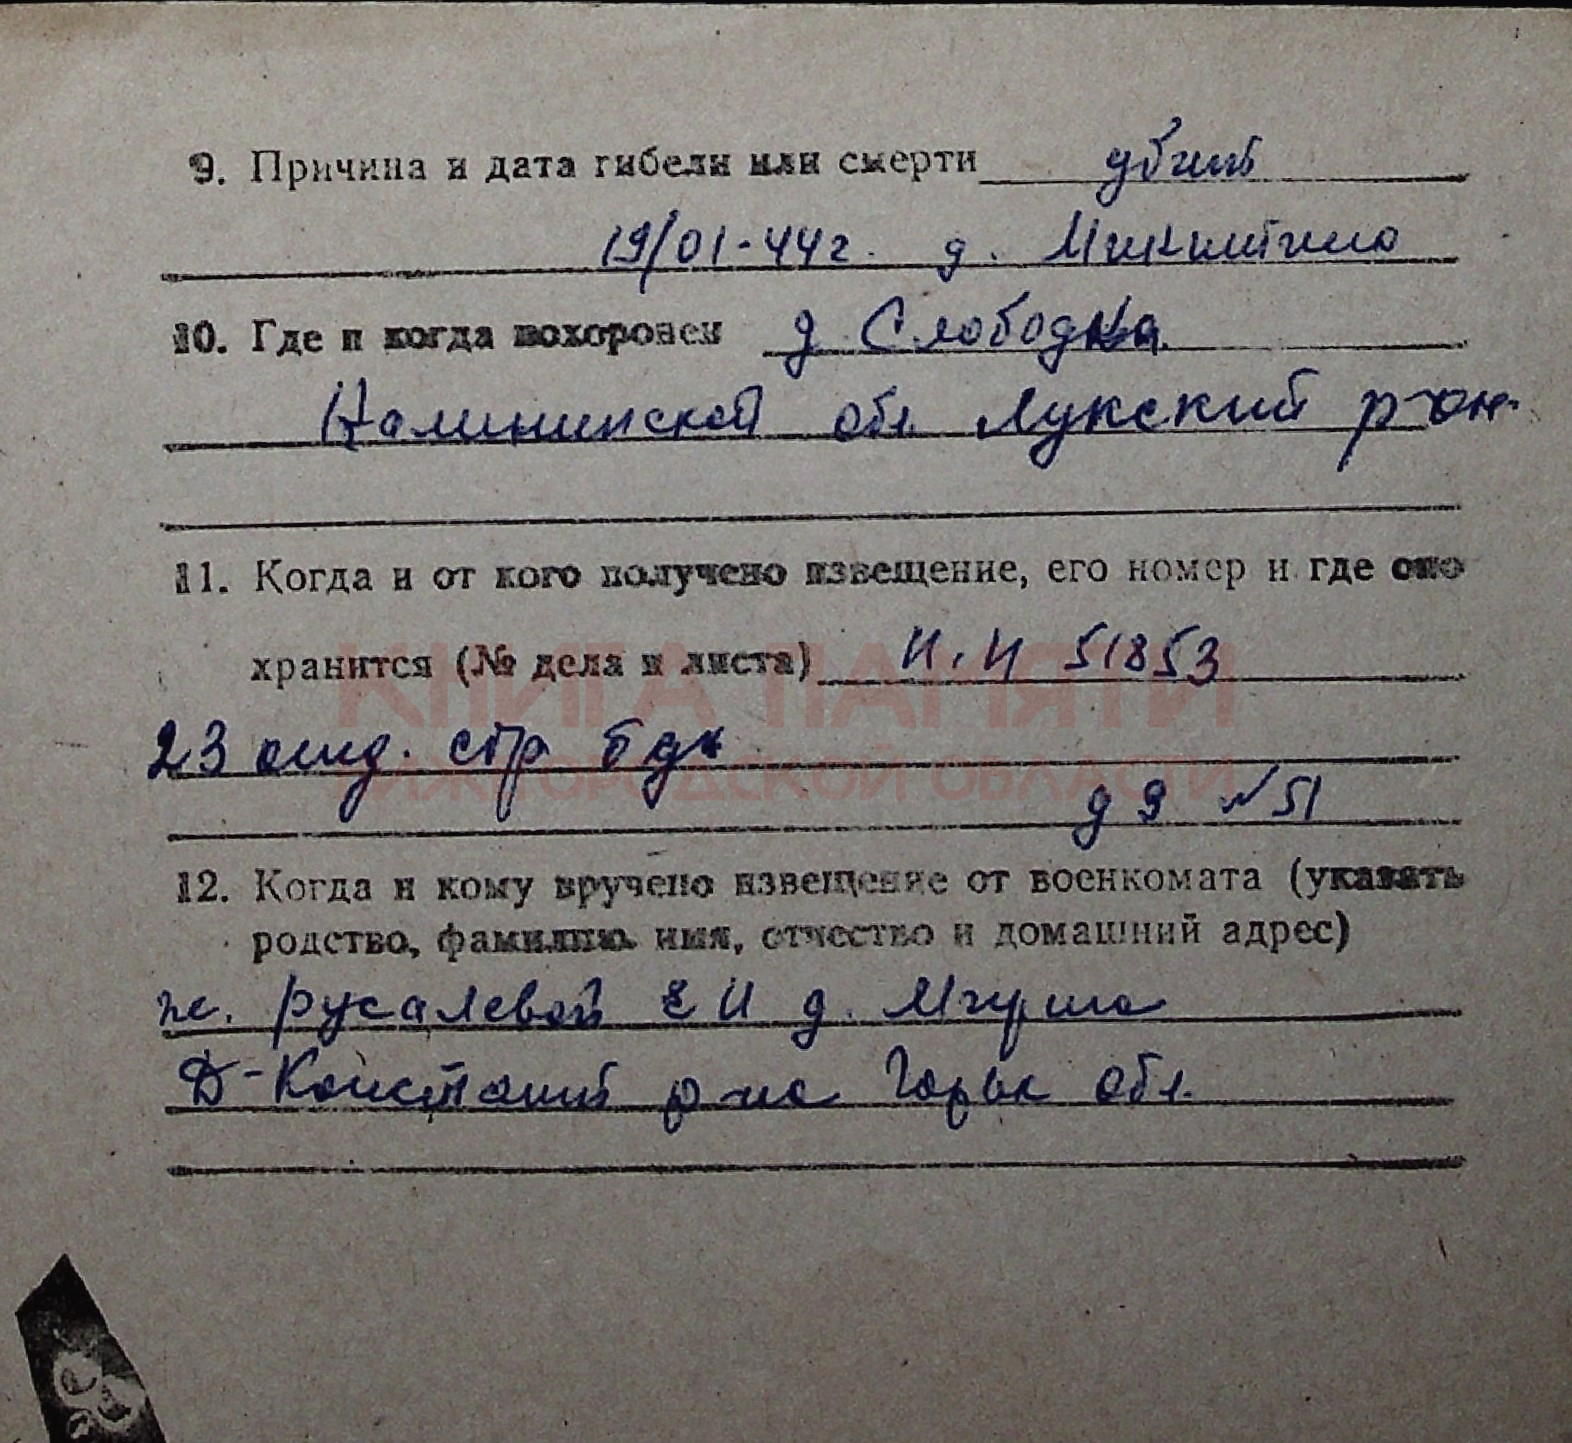 9. Причина и дата гибели или смерти убит
19/01-44г. д. Микитино
10. Где и когда похоронен д Слободка
Калининской обл. Лукский р-он.
11. Когда и от кого получено извещение, его номер и где оно
хранится (№ дела и листа) И.И 51853
КНИГА ПАМЯТИ
23 отд. стр бдк
НИЖЕГОРОДСКОЙ ОБЛАСТИ
д 9 № 51
12. Когда и кому вручено извещение от военкомата (указать
родство, фамилию имя, отчество и домашний адрес)
ж. Русалевой Е И д.
Д-Констант р-на Горьк обл.